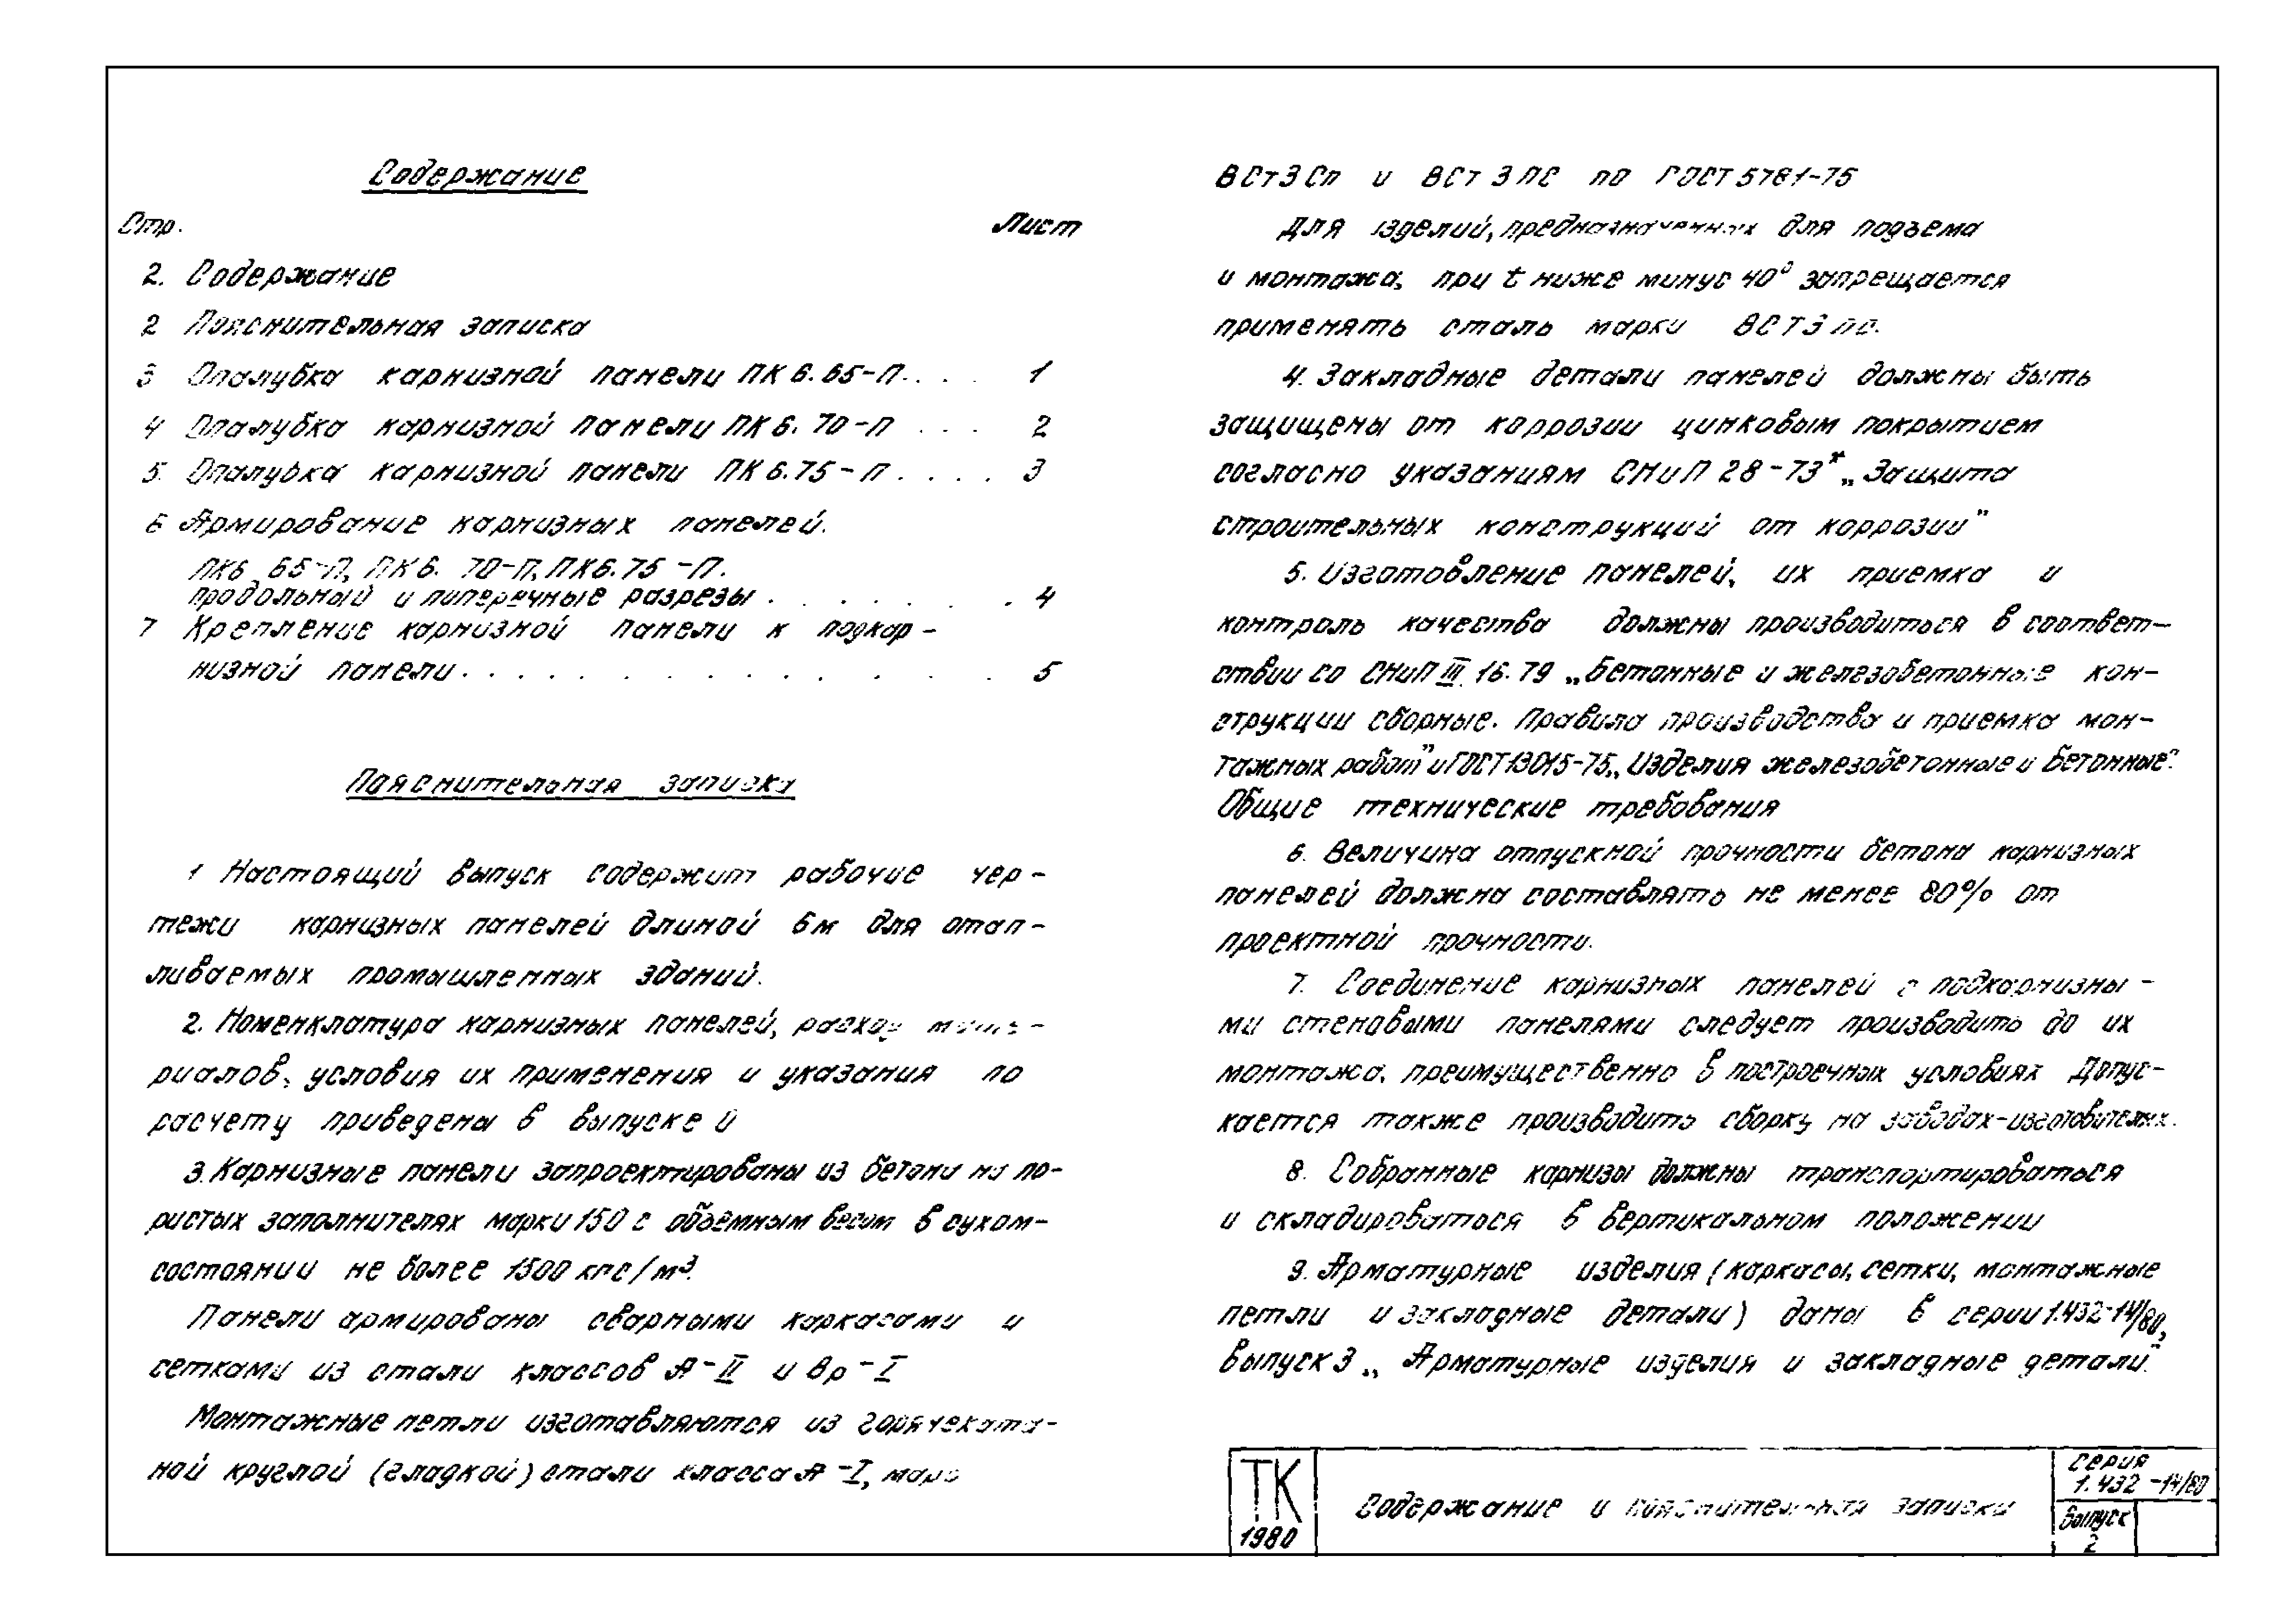 Содержание
Стр. Лист
2. Содержание
2 Пояснительная записка
3 Опалубка карнизной панели ПК 6.65-П.... 1
4 Опалубка карнизной панели ПК 6.70-П ... 2
5. Опалубка карнизной панели ПК 6.75-П.... 3
6 Армирование карнизных панелей.
ПК6 65-П, ПК 6. 70-П, ПК6.75-П.
продольный и поперечные разрезы . . . . . . . 4
7 Крепление карнизной панели к подкар-
низной панели. . . . . . . . . . . . . 5
Пояснительная записка
1 Настоящий выпуск содержит рабочие чер-
тежи карнизных панелей длиной 6м для отап-
ливаемых промышленных зданий.
2. Номенклатура карнизных панелей, расход мате-
риалов, условия их применения и указания по
расчету приведены в выпуске
3. Карнизные панели запроектированы из бетона на по-
ристых заполнителях марки 150 с объемным весом в сухом-
состоянии не более 1500 кгс/м³.
Панели армированы сварными каркасами и
сетками из стали классов А-II и Вр-I
Монтажные петли изготавляются из горячеката-
ной круглой (гладкой) стали класса А-I,
ВСт3Сп и ВСт3ПС по ГОСТ 5781-75
Для изделий, предназначенных для подъема
и монтажа, при t ниже минус 40° запрещается
применять сталь марки ВСТ3пс.
4. Закладные детали панелей должны быть
защищены от коррозии цинковым покрытием
согласно указаниям СНиП 28-73* „Защита
строительных конструкций от коррозии"
5. Изготовление панелей, их приемка и
контроль качества должны производиться в соответ-
ствии со СНиП III.16.79 „Бетонные и железобетонные кон-
струкции сборные. Правила производства и приемка мон-
тажных работ" и ГОСТ13015-75„Изделия железобетонные и бетонные".
Общие технические требования
6. Величина отпускной прочности бетона карнизных
панелей должна составлять не менее 80% от
проектной прочности.
7. Соединение карнизных панелей с подкарнизны-
ми стеновыми панелями следует производить до их
монтажа, преимущественно в построечных условиях Допус-
кается также производить сборку на заводах-изготовителях.
8. Собранные карнизы должны транспортироваться
и складироваться в вертикальном положении
9. Арматурные изделия (каркасы, сетки, монтажные
петли и закладные детали) даны в серии 1.432-14/80,
выпуск 3 „Арматурные изделия и закладные детали."
ТК
1980
Содержание и пояснительная записка
Серия
1.432-14/80
Выпуск
2